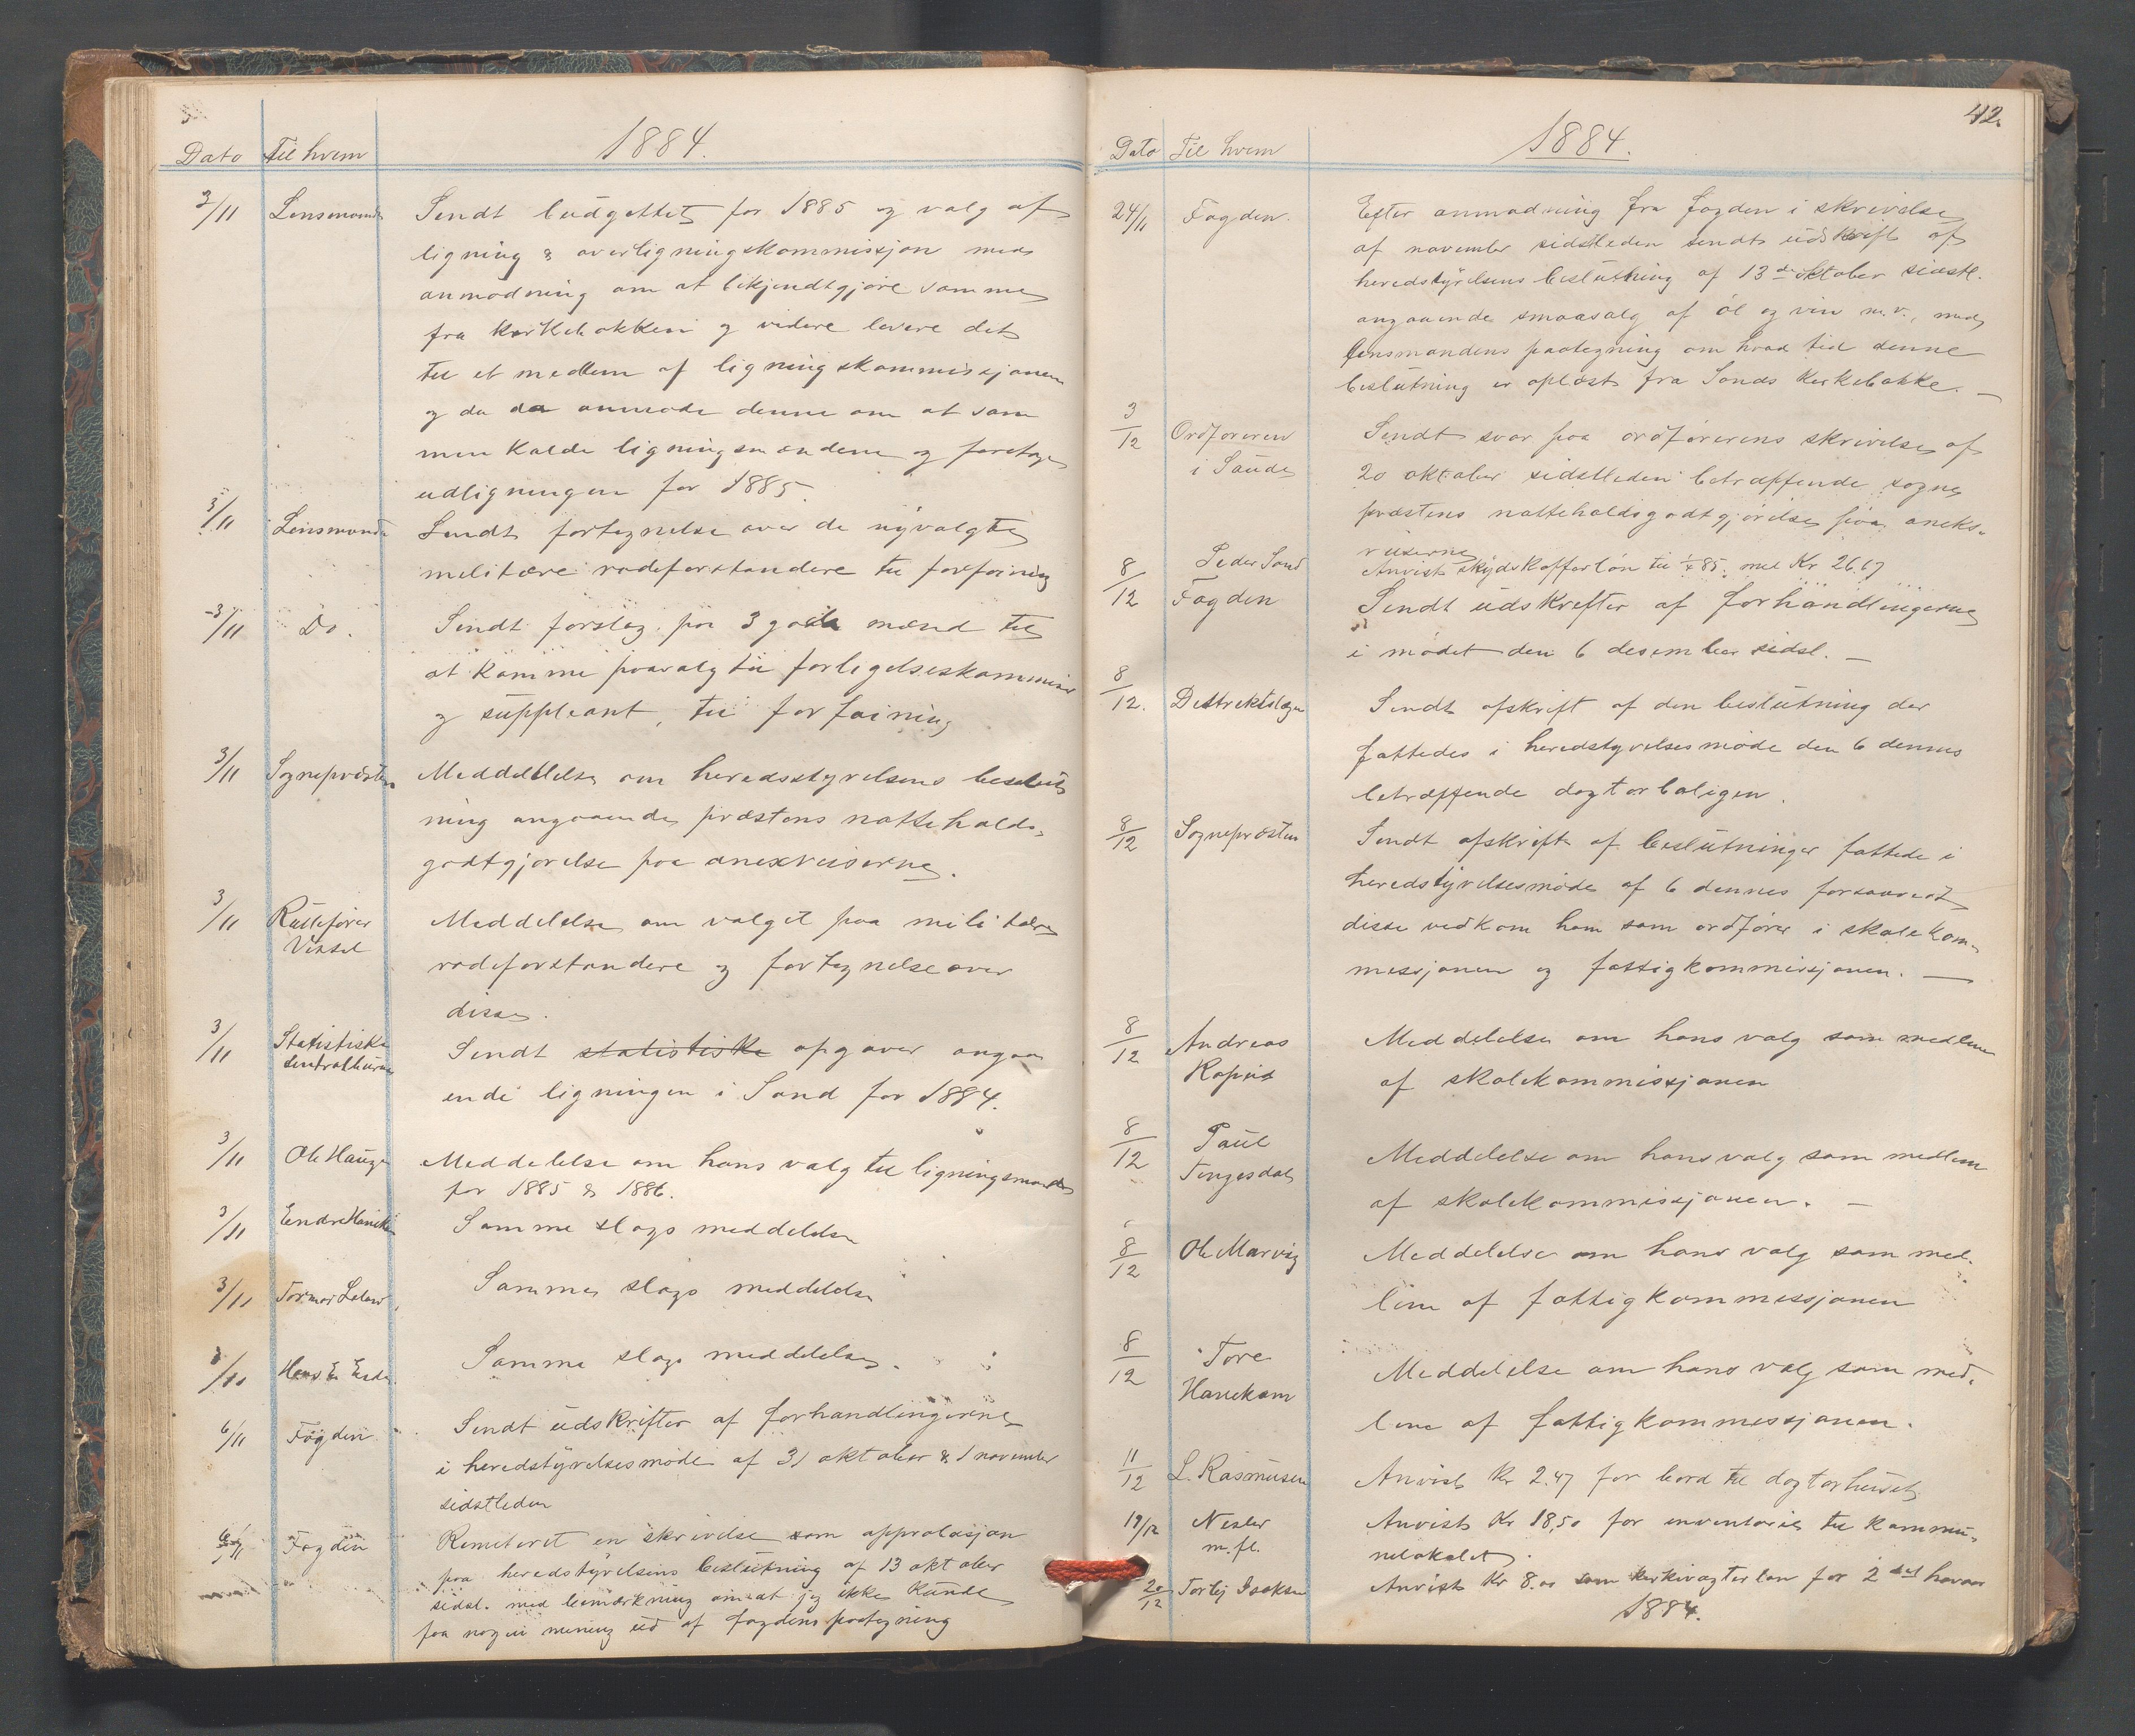 1884.
Dato Til hvem
3/11 Lensmanden Sendt budgettet for 1885 og valg af
ligning & overligningskommissjon med
anmodning om at bekjendtgjøre samme
fra kirkebakken og videre levere det
til et medlem af ligningskommissjonen
og da da anmode denne om at sam
men kalde ligningsmændene og foretage
udligningen for 1885.
3/11 Lensmanden Sendt fortegnelse over de nyvalgte
militære rodeforstandere til forføining
3/11 Do. Sendt forslag paa 3 gode mænd til
at komme paavalg til forligelseskommisær
og suppleant, til forføining
3/11 Sognepræsten Meddelelse om heredsstyrelsens beslut
ning angaaende præstens natteholds-
godtgjørelse paa anexreiserne.
3/11 Rullefører Meddelelse om valget paa militære
rodeforstandere og fortegnelse over
disse.
3/11 Statistiske
sentralbureau Sendt statistiske opgaver angaa
ende ligningen i Sand for 1884.
3/11 Ole Hauge Meddelelse om hans valg til ligningsmand
for 1885 & 1886.
3/11 Endre Samme slags meddelelse
3/11 Tormod Samme slags meddelelse
3/11 Hans E Samme slags meddelelse.
6/11 Fogden Sendt udskrifter af forhandlingerne
i heredstyrelsesmøde af 31 oktober & 1 november
sidstleden
6/11 Fogden Remiteret en skrivelse som approbasjon
paa heredstyrelsens beslutning af 13 oktober
sidstl. med bemærkning om at jeg ikke kunde
faa nogen mening ud af fogdens paategning
42.
1884.
Dato Til hvem
24/11 Fogden. Efter anmodning fra fogden i skrivelse
af november sidstleden sendt udskrift af
heredstyrelsens beslutning af 13de oktober sidstl.
angaaende smaasalg af øl og vin m.v., med
lensmandens paategning om hvad tid denne
beslutning er oplæst fra Sands kirkebakke. —
3/12 Ordføreren
i Saude Sendt svar paa ordførerens skrivelse af
20 oktober sidstleden betræffende sogne
præstens natteholdsgodtgjørelse paa aneks-
reiserne
8/12 Peder Sand Anvist skydskafferløn til 85. med Kr 26.67
Fogden Sendt udskrifter af forhandlingerne
i mødet den 6 desember sidstl. —
8/12. Distriktslægen Sendt afskrift af den beslutning der
fattedes i heredstyrelsesmøde den 6 dennes
betræffende dogtorboligen.
8/12 Sognepræsten Sendt afskrift af beslutninger fattede i
heredstyrelsesmøde af 6 dennes forsaavidt
disse vedkom ham som ordfører i skolekom-
missjonen og fattigkommissjonen. —
8/12 Andreas Meddelelse om hans valg som medlem
af skolekommissjonen
8/12 Paul
Tengesdal Meddelelse om hans valg som medlem
af skolekommissjonen. —
8/12 Ole Marvig Meddelelse om hans valg som med-
lem af fattigkommissjonen
8/12 Tore
Hanekam Meddelelse om hans valg som med-
lem af fattigkommissjonen.
11/12 L. Rasmusen Anvist Kr 2.47 for bord til dogtorhuset
19/12 Nesler
m. fl. Anvist Kr 18,50 for inventarie til kommu-
nelokalet.
20/12 Torbj Isaksen Anvist Kr 8.00 som kirkevægterløn for 2det halvaar
1884.